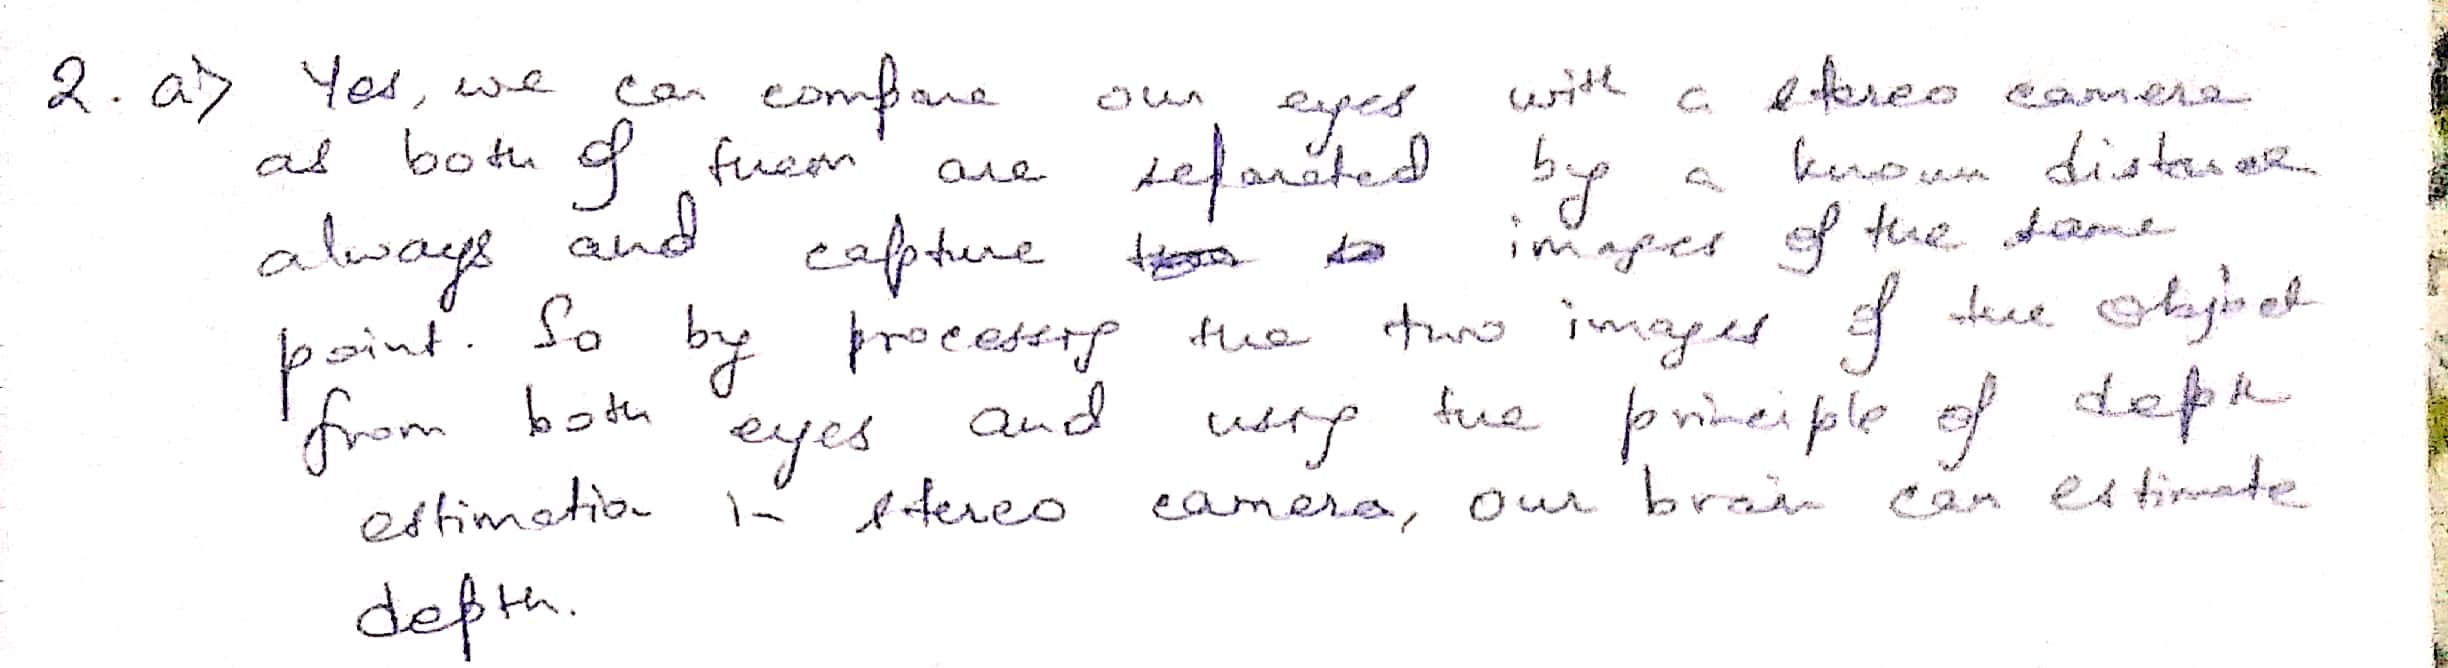 2. a> Yes, we can compare our eyes with a stereo camera
as both of them are separated by a known distance
always and capture images of the same
point. So by processing the two images of the object
from both eyes and using the principle of depth
estimation in stereo camera, our brain can estimate
depth.